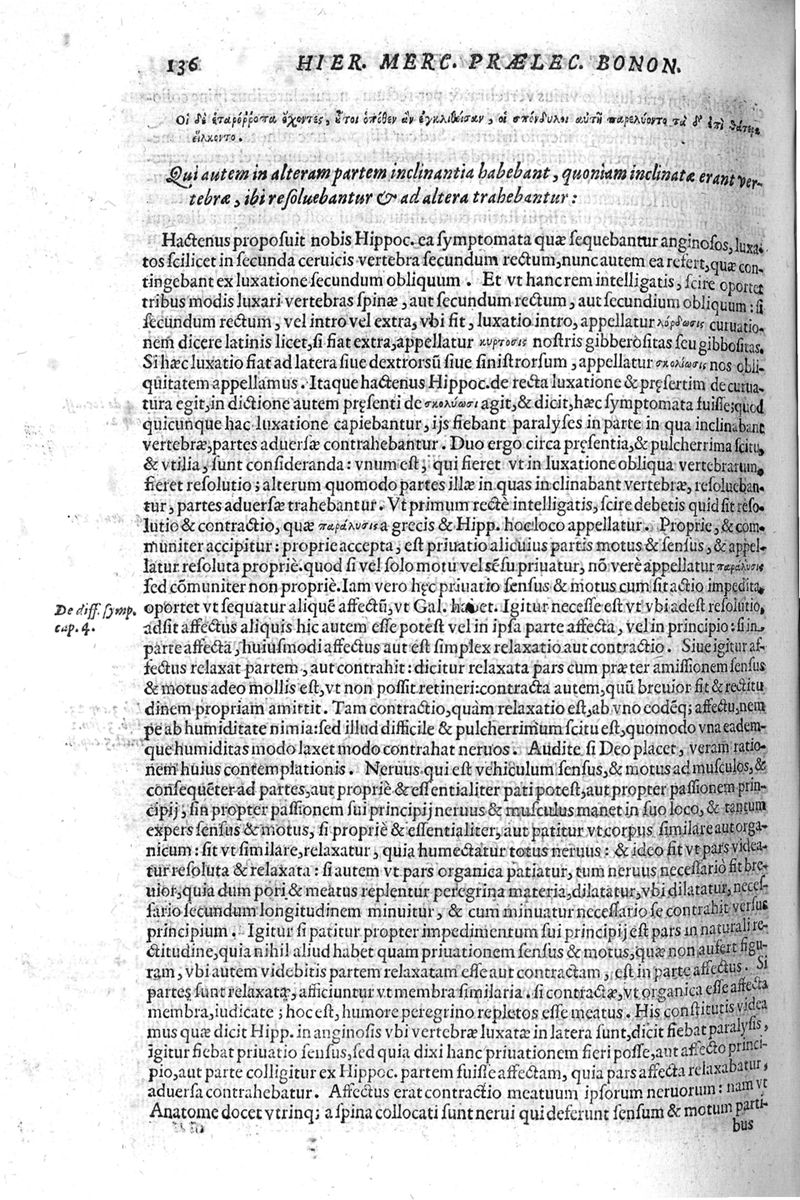 136 HIER. MERC. PRÆLEC. BONON.
Οἱ δὲ ἑταρόῤῥοπα ἔχοντες, οἱ σπόνδυλοι αὐτῇ παρελύοντο τὰ δ' ἐπὶ θάτερα
εἵλκοντο.
Qui autem in alteram partem inclinantia habebant, quoniam inclinatæ erant ver-
tebræ, ibi reſoluebantur & ad altera trahebantur:
Hactenus propoſuit nobis Hippoc. ea ſymptomata quæ ſequebantur anginoſos, luxa-
tos ſcilicet in ſecunda ceruicis vertebra ſecundum rectum, nunc autem ea refert, quæ con-
tingebant ex luxatione ſecundum obliquum. Et vt hanc rem intelligatis, ſcire oportet
tribus modis luxari vertebras ſpinæ, aut ſecundum rectum, aut ſecundium obliquum: ſi
ſecundum rectum, vel intro vel extra, vbi fit, luxatio intro, appellatur λόρδωσις curuatio-
nem dicere latinis licet, ſi fiat extra, appellatur κυρτοσις noſtris gibberoſitas ſeu gibboſitas.
Si hæc luxatio fiat ad latera ſiue dextrorsū ſiue ſiniſtrorſum, appellatur σκολίωσις nos obli-
quitatem appellamus. Itaque hactenus Hippoc. de recta luxatione & pręſertim de curua-
tura egit, in dictione autem pręſenti de σκολύωσι agit, & dicit, hæc ſymptomata fuiſſe; quod
quicunque hac luxatione capiebantur, ijs fiebant paralyſes in parte in qua inclinabant
vertebræ, partes aduerſæ contrahebantur. Duo ergo circa pręſentia, & pulcherrima ſcitu,
& vtilia, ſunt conſideranda: vnum eſt, qui fieret vt in luxatione obliqua vertebrarum,
fieret reſolutio; alterum quomodo partes illæ in quas inclinabant vertebræ, reſolueban-
tur, partes aduerſæ trahebantur. Vt primum rectè intelligatis, ſcire debetis quid ſit reſo-
lutio & contractio, quæ παράλυσις a grecis & Hipp. hoc loco appellatur. Proprie, & com-
muniter accipitur: proprie accepta, eſt priuatio alicuius partis motus & ſenſus, & appel-
latur reſoluta propriè. quod ſi vel ſolo motu vel sēſu priuatur, nō verè appellatur παράλυσις
ſed cōmuniter non propriè. Iam vero hęc priuatio ſenſus & motus cum ſit actio impedita,
De diff. ſymp. oportet vt ſequatur aliquē affectū, vt Gal. habet. Igitur neceſſe eſt vt vbi adeſt reſolutio,
cap. 4. adſit affectus aliquis hic autem eſſe poteſt vel in ipſa parte affecta, vel in principio: ſi in
parte affecta, huiuſmodi affectus aut eſt ſimplex relaxatio aut contractio. Siue igitur af-
fectus relaxat partem, aut contrahit: dicitur relaxata pars cum præter amiſſionem ſenſus
& motus adeo mollis eſt, vt non poſſit retineri: contracta autem, quū breuior fit & rectitu
dinem propriam amittit. Tam contractio, quàm relaxatio eſt, ab vno codēq; affectu, nem
pe ab humiditate nimia: ſed illud difficile & pulcherrimum ſcitu eſt, quomodo vna eadem-
que humiditas modo laxet modo contrahat neruos. Audite ſi Deo placet, veram ratio-
nem huius contemplationis. Neruus qui eſt vehiculum ſenſus, & motus ad muſculos, &
conſequēter ad partes, aut propriè & eſſentialiter pati poteſt, aut propter paſſionem prin-
cipij, ſin propter paſſionem ſui principij neruus & muſculus manet in ſuo loco, & tantum
expers ſenſus & motus, ſi propriè & eſſentialiter, aut patitur vt corpus ſimilare aut orga-
nicum: ſit vt ſimilare, relaxatur, quia humectatur totus neruus: & ideo fit vt pars videa-
tur reſoluta & relaxata: ſi autem vt pars organica patiatur, tum neruus neceſſario fit bre-
uior, quia dum pori & meatus replentur peregrina materia, dilatatur, vbi dilatatur, neceſ-
ſario ſecundum longitudinem minuitur, & cum minuatur neceſſario ſe contrahit verſus
principium. Igitur ſi patitur propter impedimentum ſui principij eſt pars in naturali re-
ctitudine, quia nihil aliud habet quam priuationem ſenſus & motus, quæ non aufert figu-
ram, vbi autem videbitis partem relaxatam eſſe aut contractam, eſt in parte affectus. Si
partes ſunt relaxatæ, afficiuntur vt membra ſimilaria. ſi contractæ, vt organica eſſe affecta
membra, iudicate; hoc eſt, humore peregrino repletos eſſe meatus. His conſtitutis videa
mus quæ dicit Hipp. in anginoſis vbi vertebræ luxatæ in latera ſunt, dicit fiebat paralyſis,
igitur fiebat priuatio ſenſus, ſed quia dixi hanc priuationem fieri poſſe, aut affecto princi-
pio, aut parte colligitur ex Hippoc. partem fuiſſe affectam, quia pars affecta relaxabatur,
aduerſa contrahebatur. Affectus erat contractio meatuum ipſorum neruorum: nam vt
Anatome docet vtrinq; a ſpina collocati ſunt nerui qui deferunt ſenſum & motum parti-
bus